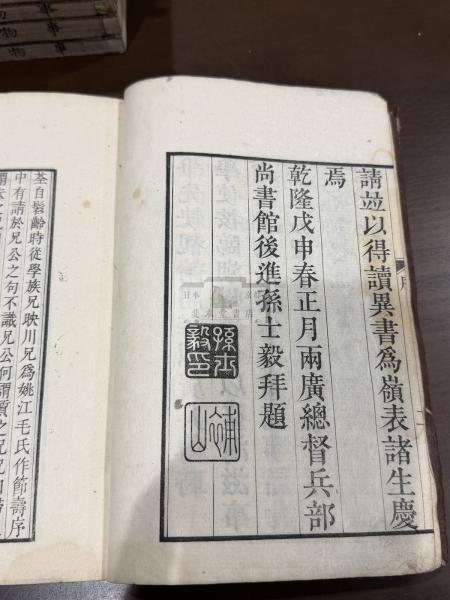 請並以得讀異書爲嶺表諸生慶
焉
乾隆戊申春正月兩廣總督兵部
尚書館後進孫士毅拜題
孫士毅印
補山
序
荃自髫齡時從學族兄映川兄爲姚江毛氏作節壽序
中有請於兄公之句不識兄公何謂質之兄兄曰
事物
事物